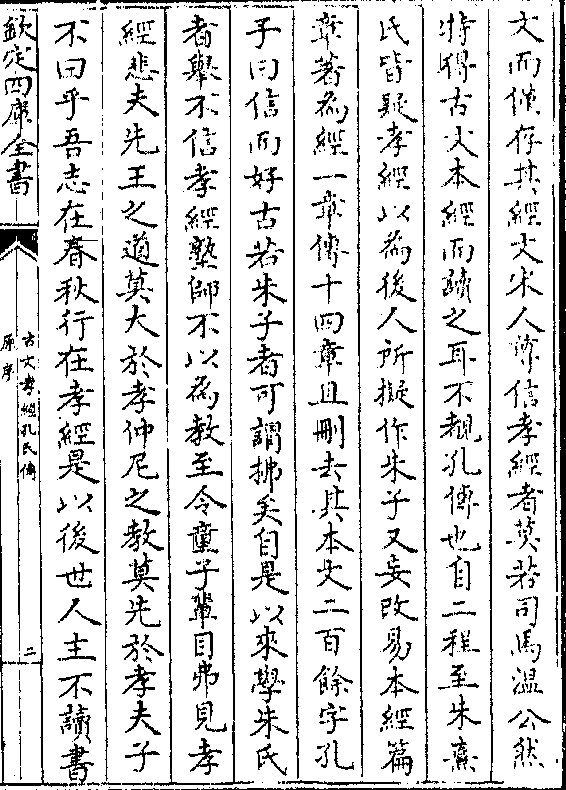 文而僅存其經文宋人深信孝經者莫若司馬溫公然
特得古文本經而讀之耳不覩孔傳也自二程至朱熹
氏皆疑孝經以為後人所擬作朱子又妄改易本經篇
章著為經一章傳十四章且刪去其本文二百餘字孔
子曰信而好古若朱子者可謂拂矣自是以來學朱氏
者舉不信孝經塾師不以為教至令童子輩目弗見孝
經悲夫先王之道莫大於孝仲尼之教莫先於孝夫子
不曰乎吾志在春秋行在孝經是以後世人主不讀書
欽定四庫全書
古文孝經孔氏傳
原序
二